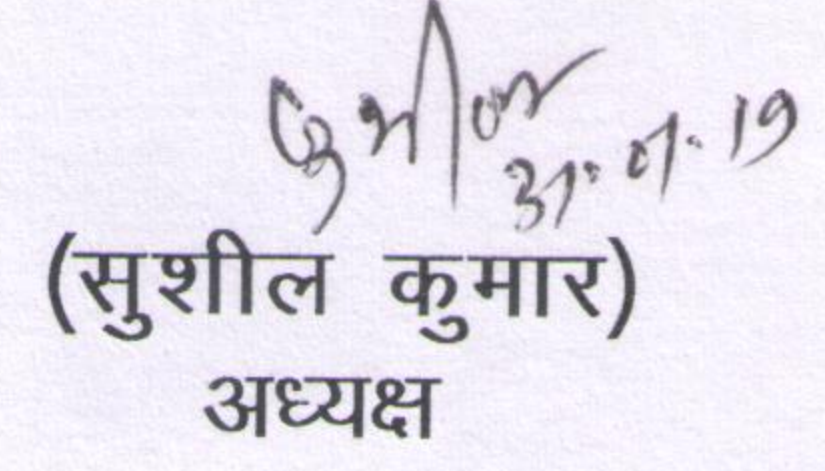 सुशील
31.01.19
(सुशील कुमार)
अध्यक्ष